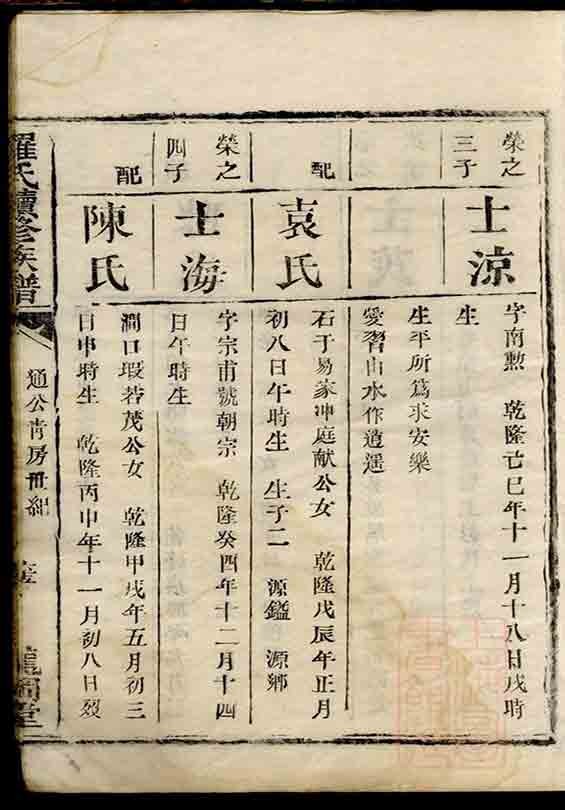 榮之
三子
士涼
字南勲 乾隆亡巳年十一月十八日戌時
生
生平所爲求安樂
愛習山水作逍遥
配
袁氏
石于易家冲庭献公女 乾隆戊辰年正月
初八日午時生 生子二 源鎰 源鄉
榮之
四子
士海
字宗甫號朝宗 乾隆癸酉年十二月十四
日午時生
配
陳氏
澗口瑕若茂公女 乾隆甲戌年五月初三
日申時生 乾隆丙申年十一月初八日歿
羅氏續修族譜
通公青房世紀